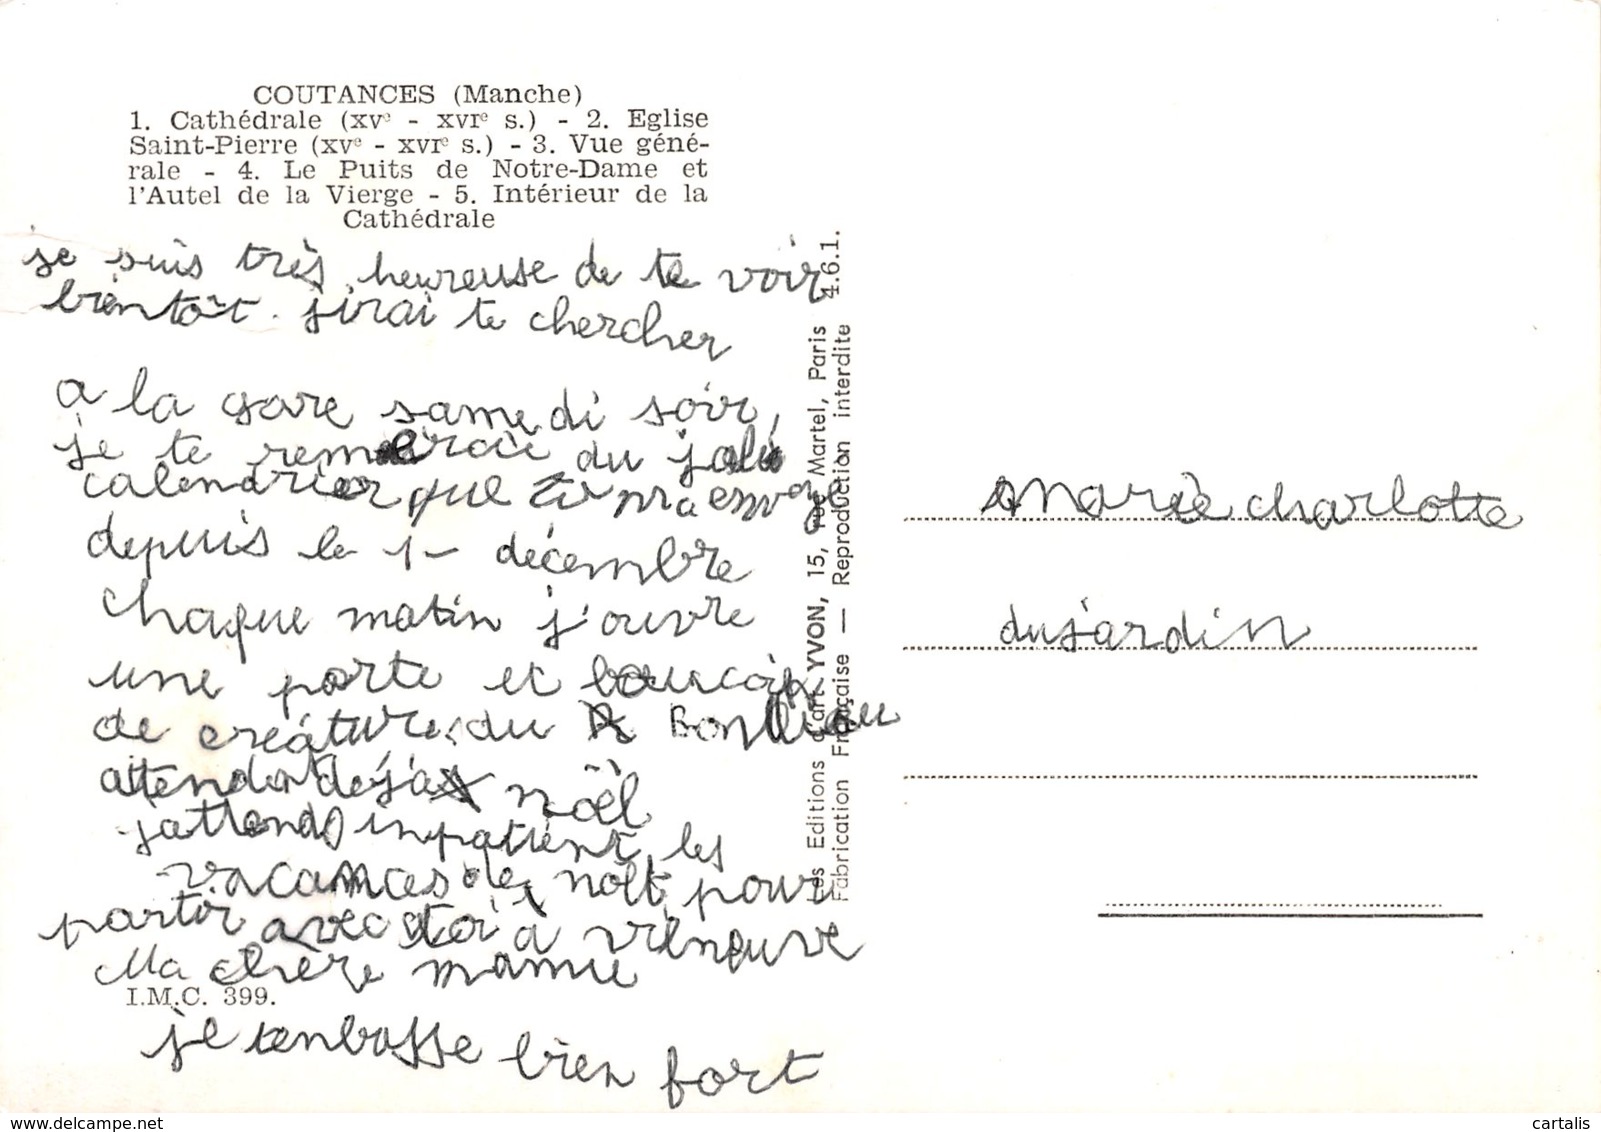 COUTANCES (Manche)
1. Cathédrale (XVe - XVIe s.) - 2. Eglise
Saint-Pierre (XVe - XVIe s.) - 3. Vue géné-
rale - 4. Le Puits de Notre-Dame et
l'Autel de la Vierge - 5. Intérieur de la
Cathédrale
je suis très heureuse de te voir
bientôt. jirai te chercher
a la gare samedi soir,
je te du joli
calendrier que tu ma envoye
depuis le 1 décembre
chaque matin j'ouvre
une porte et
de créature du Bon Dieu
attendat deja noël
jattends inpatient les
vacances de pour
partir avec toi a vilneuve
Ma chère mamie
je tenbasse bien fort
I.M.C. 399.
Les Editions d'art YVON, 15, rue Martel, Paris 4.6.1.
Fabrication Française — Reproduction interdite
marie charlotte
dujardin
delcampe.net
cartalis